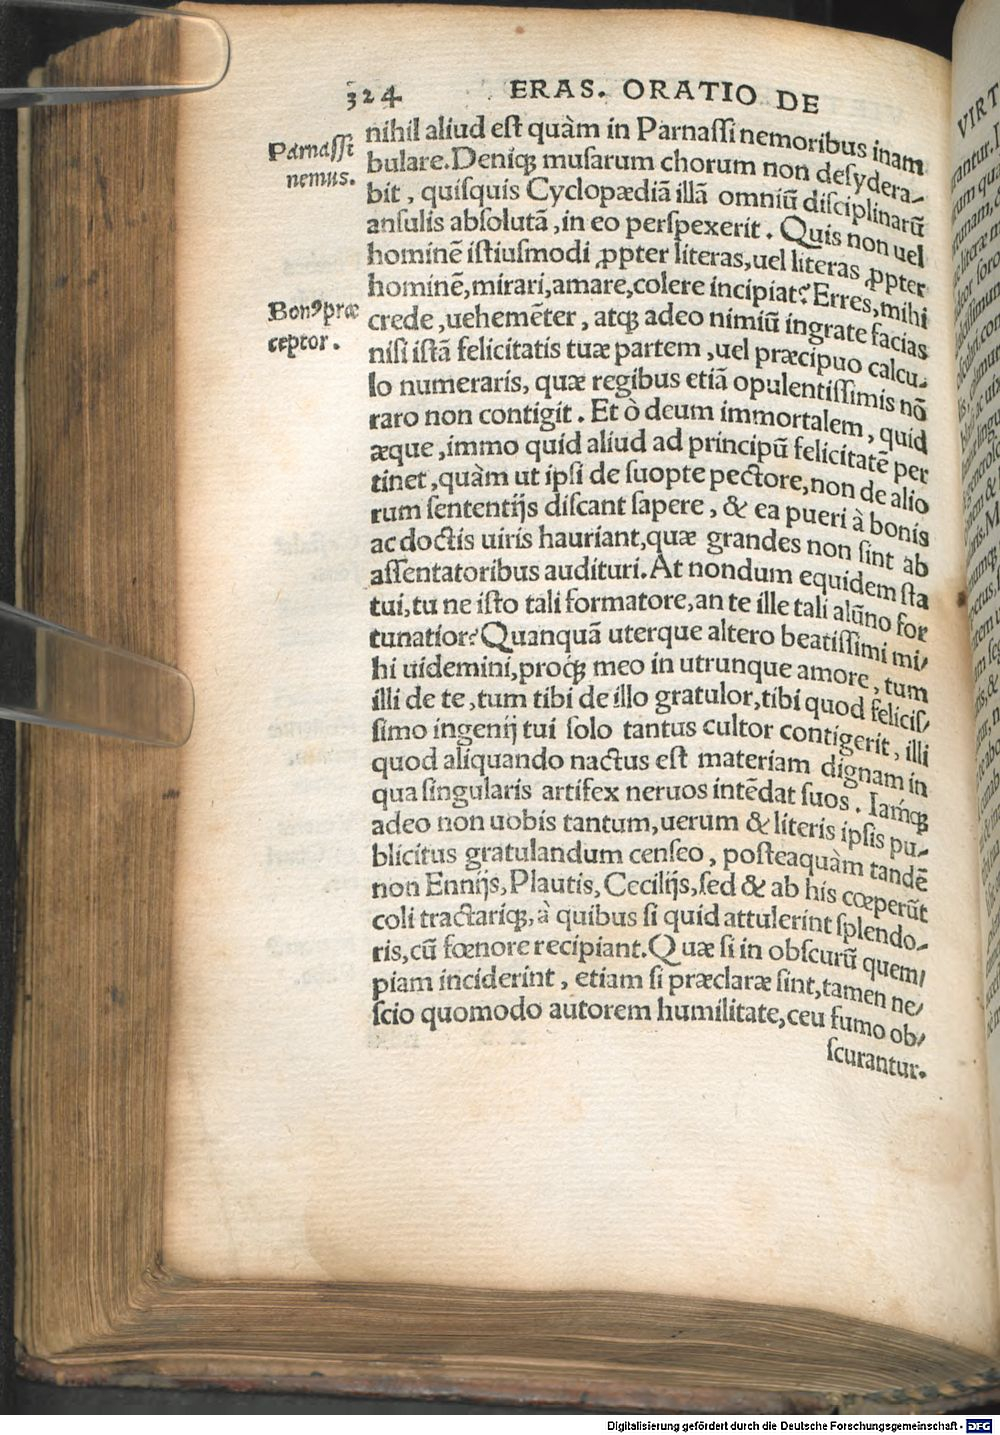 324 ERAS. ORATIO DE
Parnaſſi
nemus.
nihil aliud eſt quàm in Parnaſſi nemoribus inam
bulare. Deniqꝫ muſarum chorum non deſydera-
bit, quiſquis Cyclopædiā illā omniū diſciplinarū
anſulis abſolutā, in eo perſpexerit. Quis non uel
hominē iſtiuſmodi ꝓpter literas, uel literas ꝓpter
hominē, mirari, amare, colere incipiat? Erres, mihi
Bonꝰ præ
ceptor.
crede, uehemēter, atqꝫ adeo nimiū ingrate facias
niſi iſtā felicitatis tuæ partem, uel præcipuo calcu-
lo numeraris, quæ regibus etiā opulentiſſimis nō
raro non contigit. Et ò deum immortalem, quid
æque, immo quid aliud ad principū felicitatē per
tinet, quàm ut ipſi de ſuopte pectore, non de alio
rum ſententijs diſcant ſapere, & ea pueri à bonis
ac doctis uiris hauriant, quæ grandes non ſint ab
aſſentatoribus audituri. At nondum equidem ſta
tui, tu ne iſto tali formatore, an te ille tali alūno for
tunatior? Quanquā uterque altero beatiſſimi mi-
hi uidemini, proqꝫ meo in utrunque amore, tum
illi de te, tum tibi de illo gratulor, tibi quod feliciſ-
ſimo ingenij tui ſolo tantus cultor contigerit, illi
quod aliquando nactus eſt materiam dignam in
qua ſingularis artifex neruos intēdat ſuos. Iamqꝫ
adeo non uobis tantum, uerum & literis ipſis pu-
blicitus gratulandum cenſeo, poſteaquàm tandē
non Ennijs, Plautis, Cecilijs, ſed & ab his cœperūt
coli tractariqꝫ, à quibus ſi quid attulerint ſplendo-
ris, cū fœnore recipiant. Quæ ſi in obſcurū quem-
piam inciderint, etiam ſi præclaræ ſint, tamen ne-
ſcio quomodo autorem humilitate, ceu fumo ob-
ſcurantur.
Digitalisierung gefördert durch die Deutsche Forschungsgemeinschaft - DFG